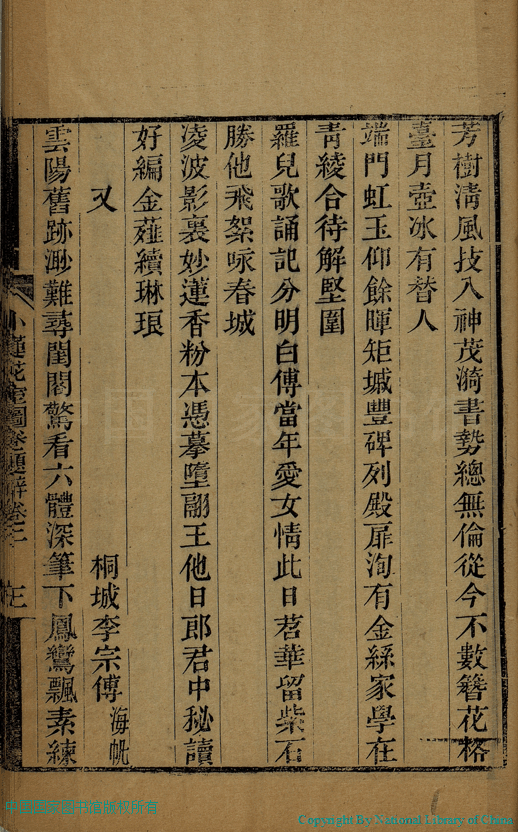 芳樹清風技入神茂漪書勢總無倫從今不數簪花格
臺月壺冰有替人
端門虹玉仰餘暉矩墄豐碑列殿扉洵有金絲家學在
青綾合待解堅圍
羅兒歌誦記分明白傅當年愛女情此日苕華留柴石
勝他飛絮咏春城
凌波影裏妙蓮香粉本憑摹墮翮王他日郎君中秘讀
好編金薤續琳琅
又
桐城李宗傳海帆
雲陽舊跡渺難尋閨閣驚看六體深筆下鳳鸞飄素練
小蓮花室圖卷題辭卷二
中国国家图书馆
中国国家图书馆版权所有
Copyright By National Library of China